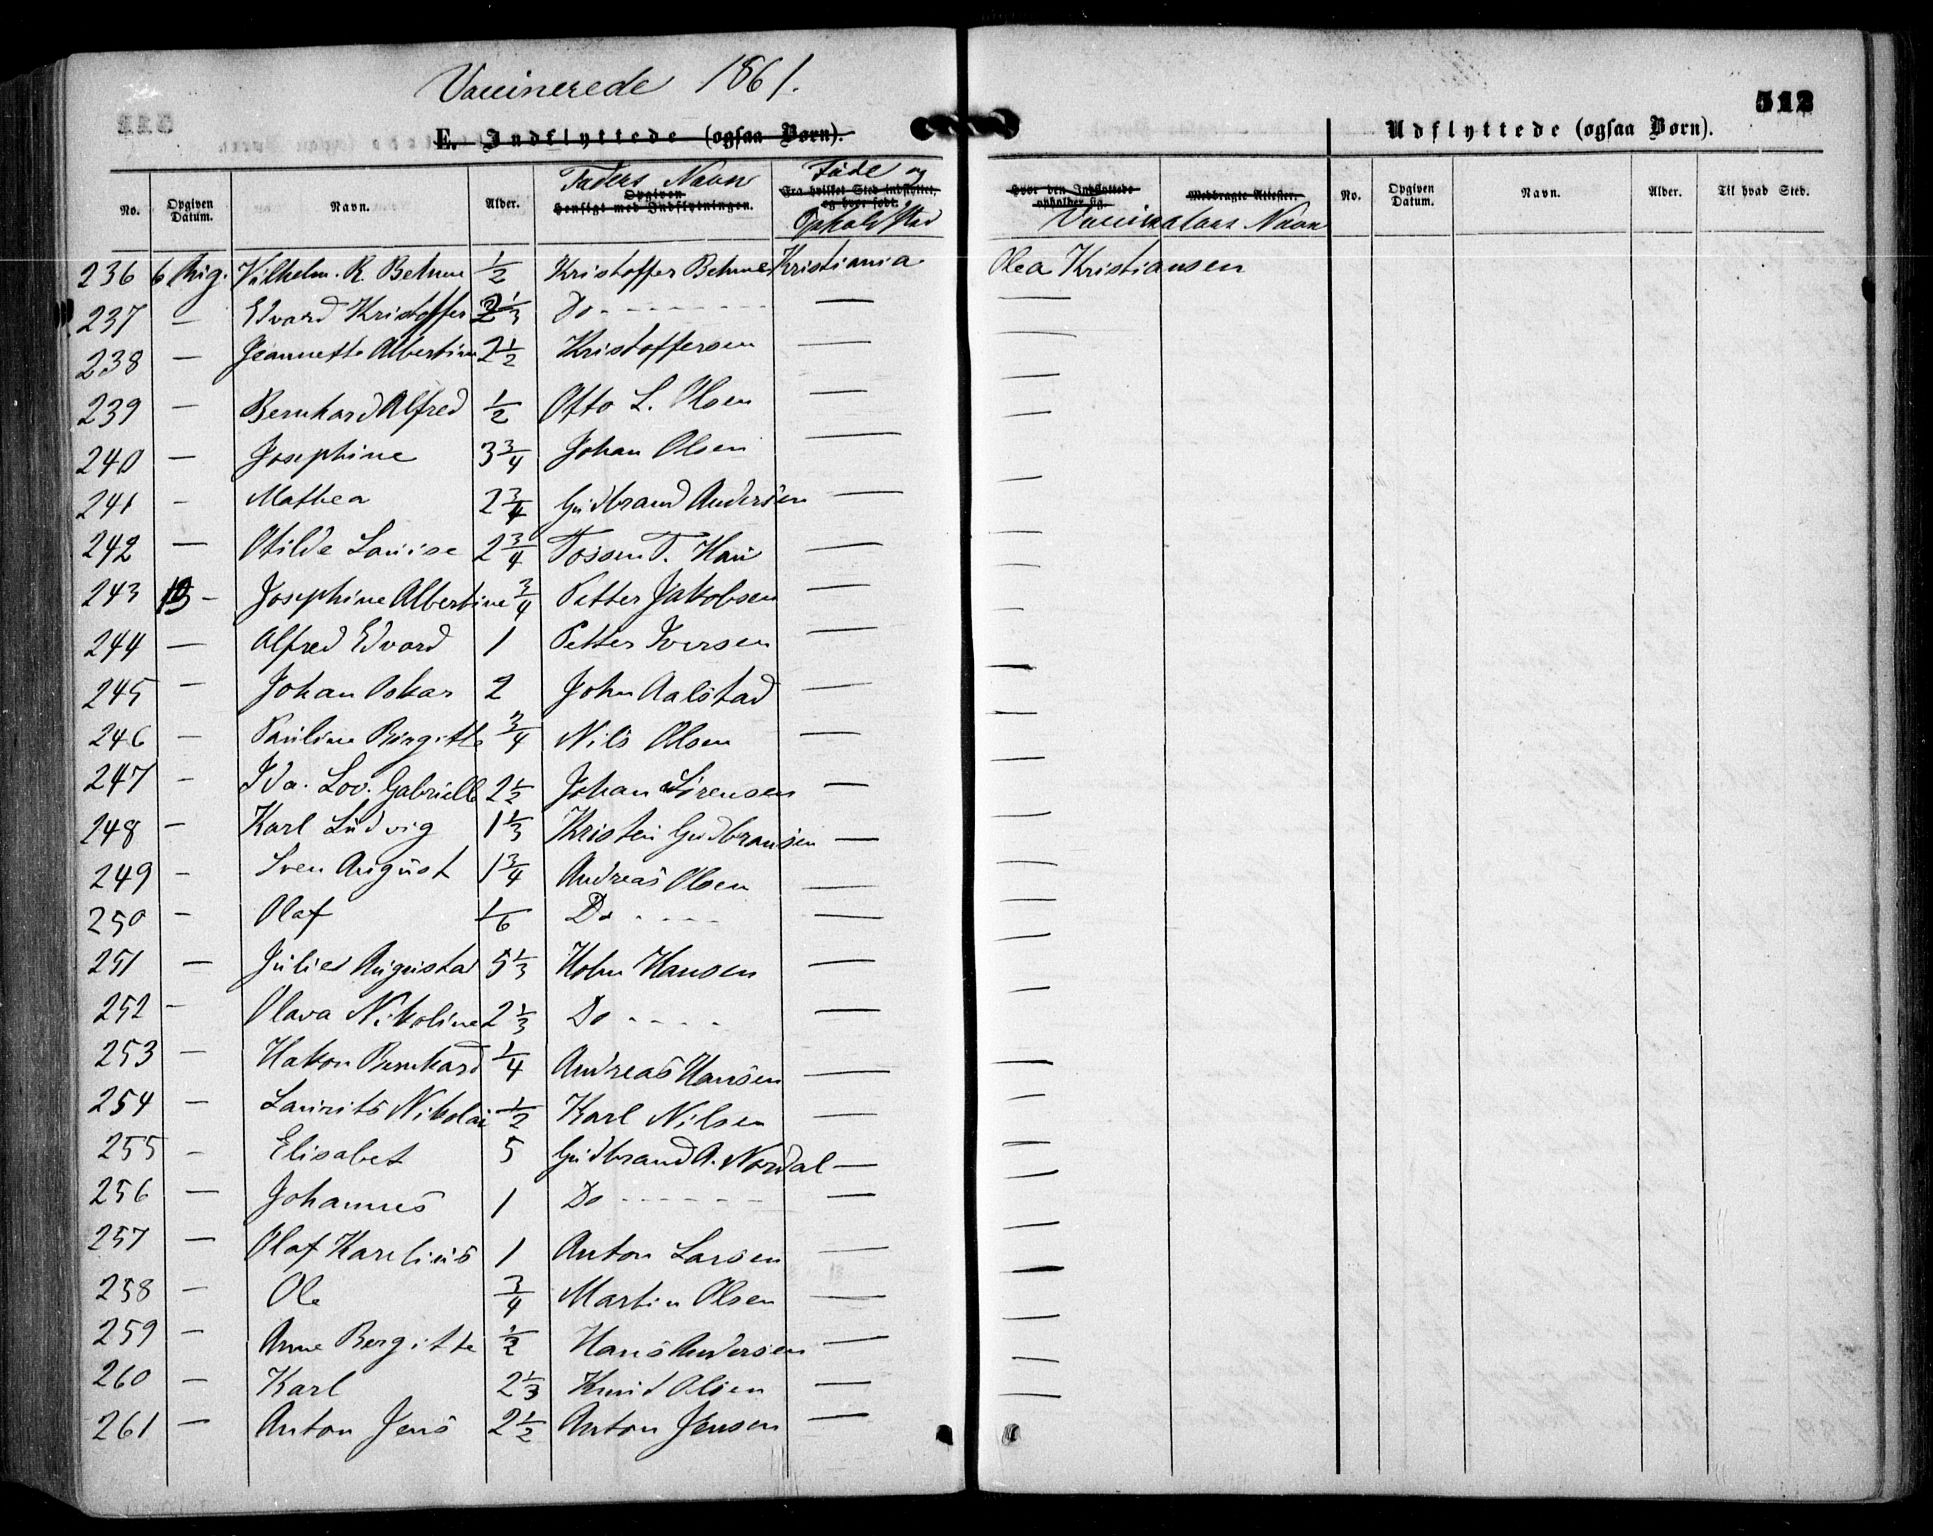 Vaccinerede 1861.
512
E. Indflyttede (ogsaa Børn).
Udflyttede (ogsaa Børn).
No. Opgiven Datum. Navn. Alder. Faders Navn Opgiven Hensigt med Indflytningen. Føde og Fra hvilket Sted indflyttet, og hvor født. Opholdssted Hvor den Indflyttede opholder sig. Medbragte Attester. Vaccinatørs Navn No. Opgiven Datum. Navn. Alder. Til hvad Sted.
236 6 Aug. Vilhelm. R. Behme 1/2 Kristoffer Behme Kristiania Olea Kristiansen
237 — Edvard Kristoffer 2 1/3 Do - - - - — —
238 — Jeannette Albertine 2 1/2 Kristoffersen — —
239 — Bernhard Alfred 1/2 Otto L. Olsen — —
240 — Josephine 3 3/4 Johan Olsen — —
241 — Mathea 2 3/4 Gudbrand Andersen — —
242 — Otilde Louise 2 3/4 T. — —
243 13 — Josephine Albertine 3/4 Petter Jakobsen — —
244 — Alfred Edvard 1 Petter Iversen — —
245 — Johan Oskar 2 John Aalstad — —
246 — Pauline Birgitte 3/4 Nils Olsen — —
247 — Ida. Lov. Gabrielle 2 1/2 Johan Sørensen — —
248 — Karl Ludvig 1 1/3 Kristen Gudbransen — —
249 — Sven August 1 3/4 Andreas Olsen — —
250 — Olaf 1/6 Do - - - — —
251 — Julie Augusta 5 1/3 Holm Hansen — —
252 — Olava Nikoline 2 1/3 Do - - - - — —
253 — Hakon Bernhard 1/4 Andreas Hansen — —
254 — Laurits Nikolai 1/2 Karl Nilsen — —
255 — Elisabet 5 Gudbrand A. Nordal — —
256 — Johannes 1 Do - - - - - — —
257 — Olaf Karelius 1 Anton Larsen — —
258 — Ole 3/4 Martin Olsen — —
259 — Anne Bergitte 1/2 Hans Andersen — —
260 — Karl 2 1/3 Knud Olsen — —
261 — Anton Jens 2 1/2 Anton Jensen — —